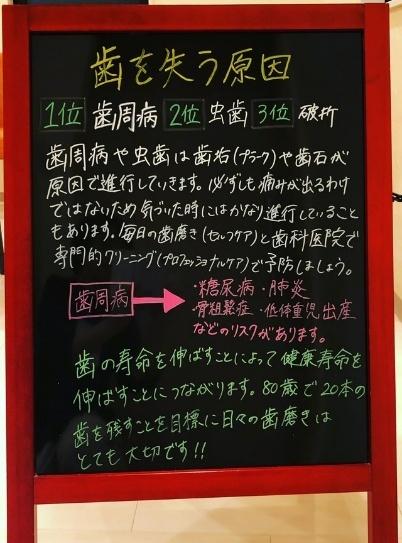 歯を失う原因
1位 歯周病 2位 虫歯 3位 破折
歯周病や虫歯は歯垢(プラーク)や歯石が
原因で進行していきます。必ずしも痛みが出るわけ
ではないため気づいた時にはかなり進行していること
もあります。毎日の歯磨き(セルフケア)と歯科医院で
専門的クリーニング(プロフェッショナルケア)で予防しましょう。
歯周病 → ・糖尿病 ・肺炎
・骨粗鬆症 ・低体重児出産
などのリスクがあります。
歯の寿命を伸ばすことによって健康寿命を
伸ばすことにつながります。80歳で20本の
歯を残すことを目標に日々の歯磨きは
とても大切です!!